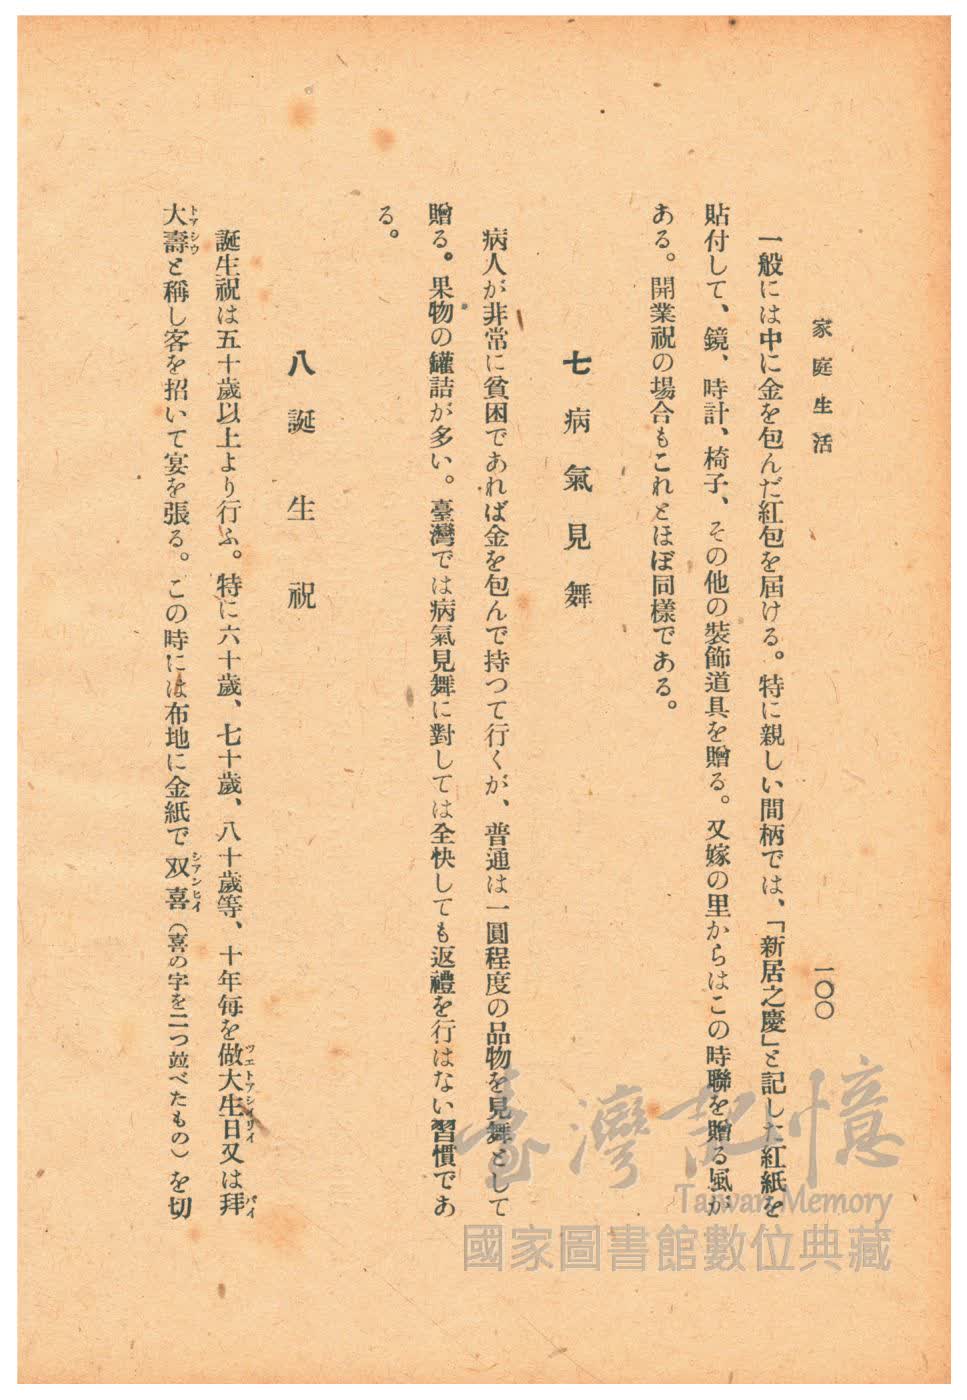 家庭生活
一〇〇
一般には中に金を包んだ紅包を屆ける。特に親しい間柄では、「新居之慶」と記した紅紙を
貼付して、鏡、時計、椅子、その他の裝飾道具を贈る。又嫁の里からはこの時聯を贈る風が
ある。開業祝の場合もこれとほぼ同樣である。
七 病氣見舞
病人が非常に貧困であれば金を包んで持つて行くが、普通は一圓程度の品物を見舞として
贈る。果物の罐詰が多い。臺灣では病氣見舞に對しては全快しても返禮を行はない習慣であ
る。
八 誕生祝
誕生祝は五十歲以上より行ふ。特に六十歲、七十歲、八十歲等、十年每を做大生日又は拜
ツエトアシイリイ
パイ
大壽と稱し客を招いて宴を張る。この時には布地に金紙で双喜（喜の字を二つ竝べたもの）を切
トアシウ
シアンヒイ
臺灣記憶
Taiwan Memory
國家圖書館數位典藏